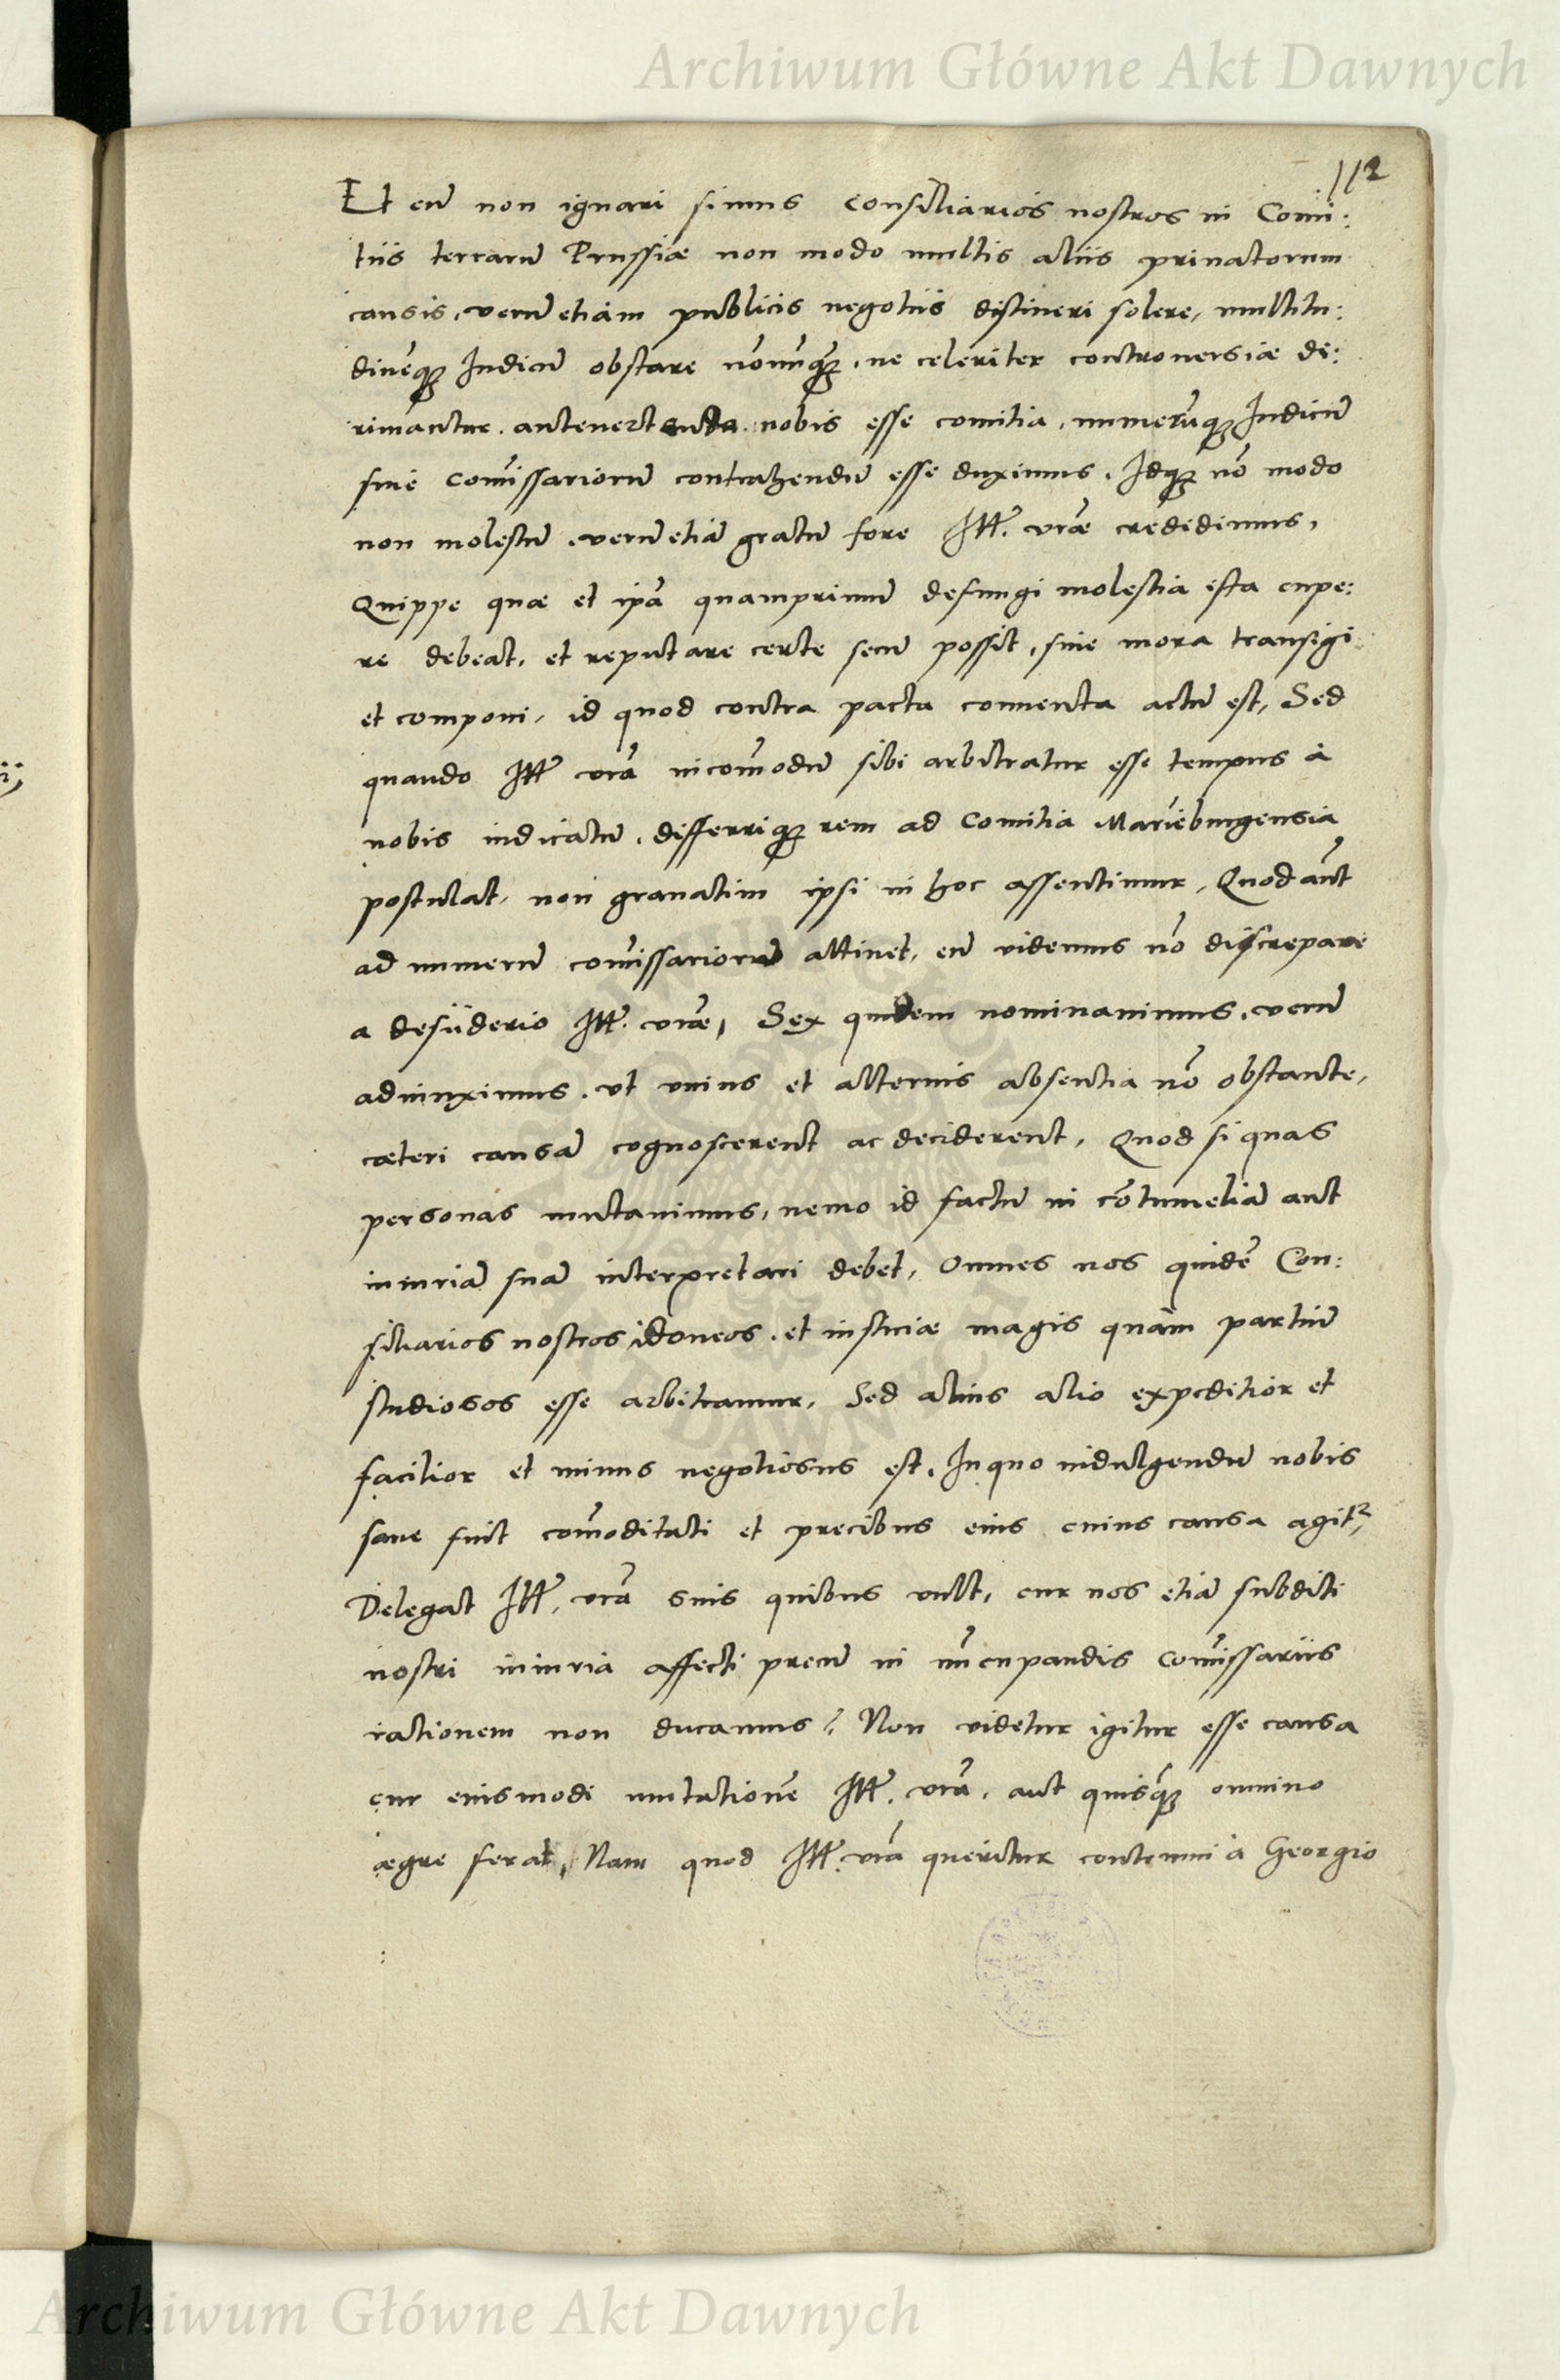 Archiwum Główne Akt Dawnych
112
Et cū non ignari simus Consiliarios nostros in Comi:
tiis terrarū Prussiæ non modo multis aliis priuatorum
causis, verū etiam publicis negotiis distineri solere, multitu:
dinēq; Iudicū obstare nōnūq̃, ne celeriter controuersiæ di:
rimantur, anteuertenda nobis esse comitia, numerūq; Iudicū
siue Com̄issariorū contrahendū esse duximus. Idq; nō modo
non molestū, verū etiā gratū fore Ill͂. vr̄æ credidimus,
Quippe quæ et ip̄a quamprimū defungi molestia ista cupe:
re debeat, et reputare certe secū possit, sine mora transigi
et componi, id quod contra pacta conuenta actū est, Sed
quando Ill͂ vr̄a incom̄odū sibi arbitratur esse tempus à
nobis indicatū, differriq; rem ad Comitia Marieburgensia
postulat, non grauatim ipsi in hoc assentimur, Quod aūt
ad numerū com̄issariorū attinet, eū videmus nō discrepare
a desiiderio Ill͂. vr̄æ, Sex quidem nominauimus, verū
adiunximus, vt vnius et alterius absentia nō obstante,
cæteri causā cognoscerent ac deciderent, Quod si quas
personas mutauimus, nemo id factū in cōtumeliā aut
iniuriā suā interpretari debet, Omnes nos quidē Con:
siliarios nostros idoneos, et iusticiæ magis quàm partiū
studiosos esse arbitramur, Sed alius alio expeditior et
facilior et minus negotiosus est, In quo indulgendū nobis
sane fuit com̄oditati et precibus eius cuius causa agit²,
Delegat Ill͂. vr̄a suis quibus vult, cur nos etiā subditi
nostri iniuria affecti precū in nūcupandis Com̄issariis
rationem non ducamus? Non videtur igitur esse causa
cur eiusmodi mutationē Ill͂. vr̄a, aut quisq̃ omnino
ægre ferat, Nam quod Ill͂. vr̄a queritur contemni à Georgio
Archiwum Główne Akt Dawnych